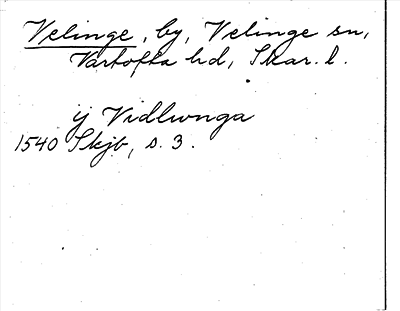 Velinge, by, Velinge sn,
Vartofta hd, Skar. l.
ij Vidlwnga
1540 Skjb, s. 3.